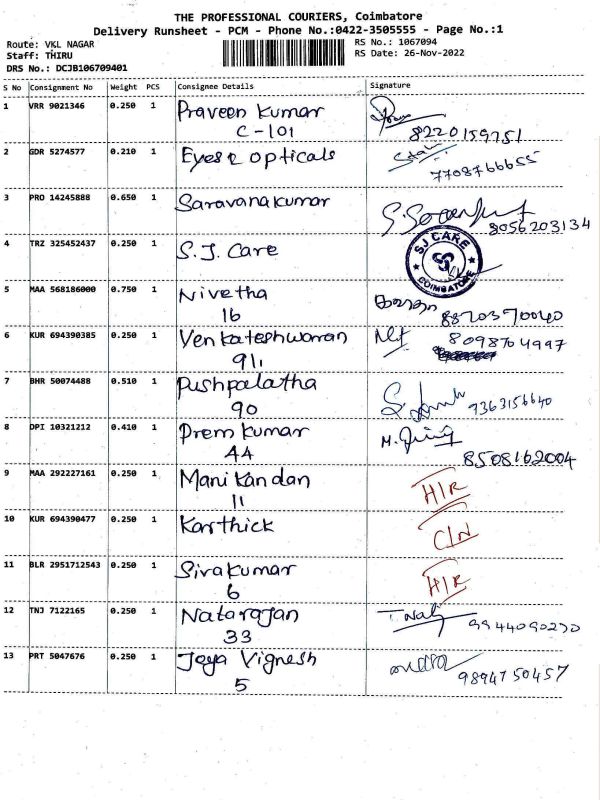 THE PROFESSIONAL COURIERS, Coimbatore
Delivery Runsheet - PCM - Phone No.:0422-3505555 - Page No.:1
Route: VKL NAGAR RS No.: 1067094
Staff: THIRU RS Date: 26-Nov-2022
DRS No.: DCJB106709401
S No Consignment No Weight PCS Consignee Details Signature
1 VRR 9021346 0.250 1 Praveen Kumar
C-101 8220159751
2 GDR 5274577 0.210 1 Eyes & opticals
7708766655
3 PRO 14245888 0.650 1 Saravanakumar
8056203134
4 TRZ 325452437 0.250 1 S.J. Care SJ CARE COIMBATORE
5 MAA 568186000 0.750 1 Nivetha
16 8870370040
6 KUR 694390385 0.250 1 Venkateshwaran 8098704997
91,
7 BHR 50074488 0.510 1 Pushpalatha
90 9363156640
8 DPI 10321212 0.410 1 Prem Kumar
44 8508162004
9 MAA 292227161 0.250 1 Manikandan H/R
11
10 KUR 694390477 0.250 1 Karthick C/N
11 BLR 2951712543 0.250 1 Sivakumar H/R
6
12 TNJ 7122165 0.250 1 Natarajan
33 9944090270
13 PRT 5047676 0.250 1 Jeya Vignesh
5 9894750457